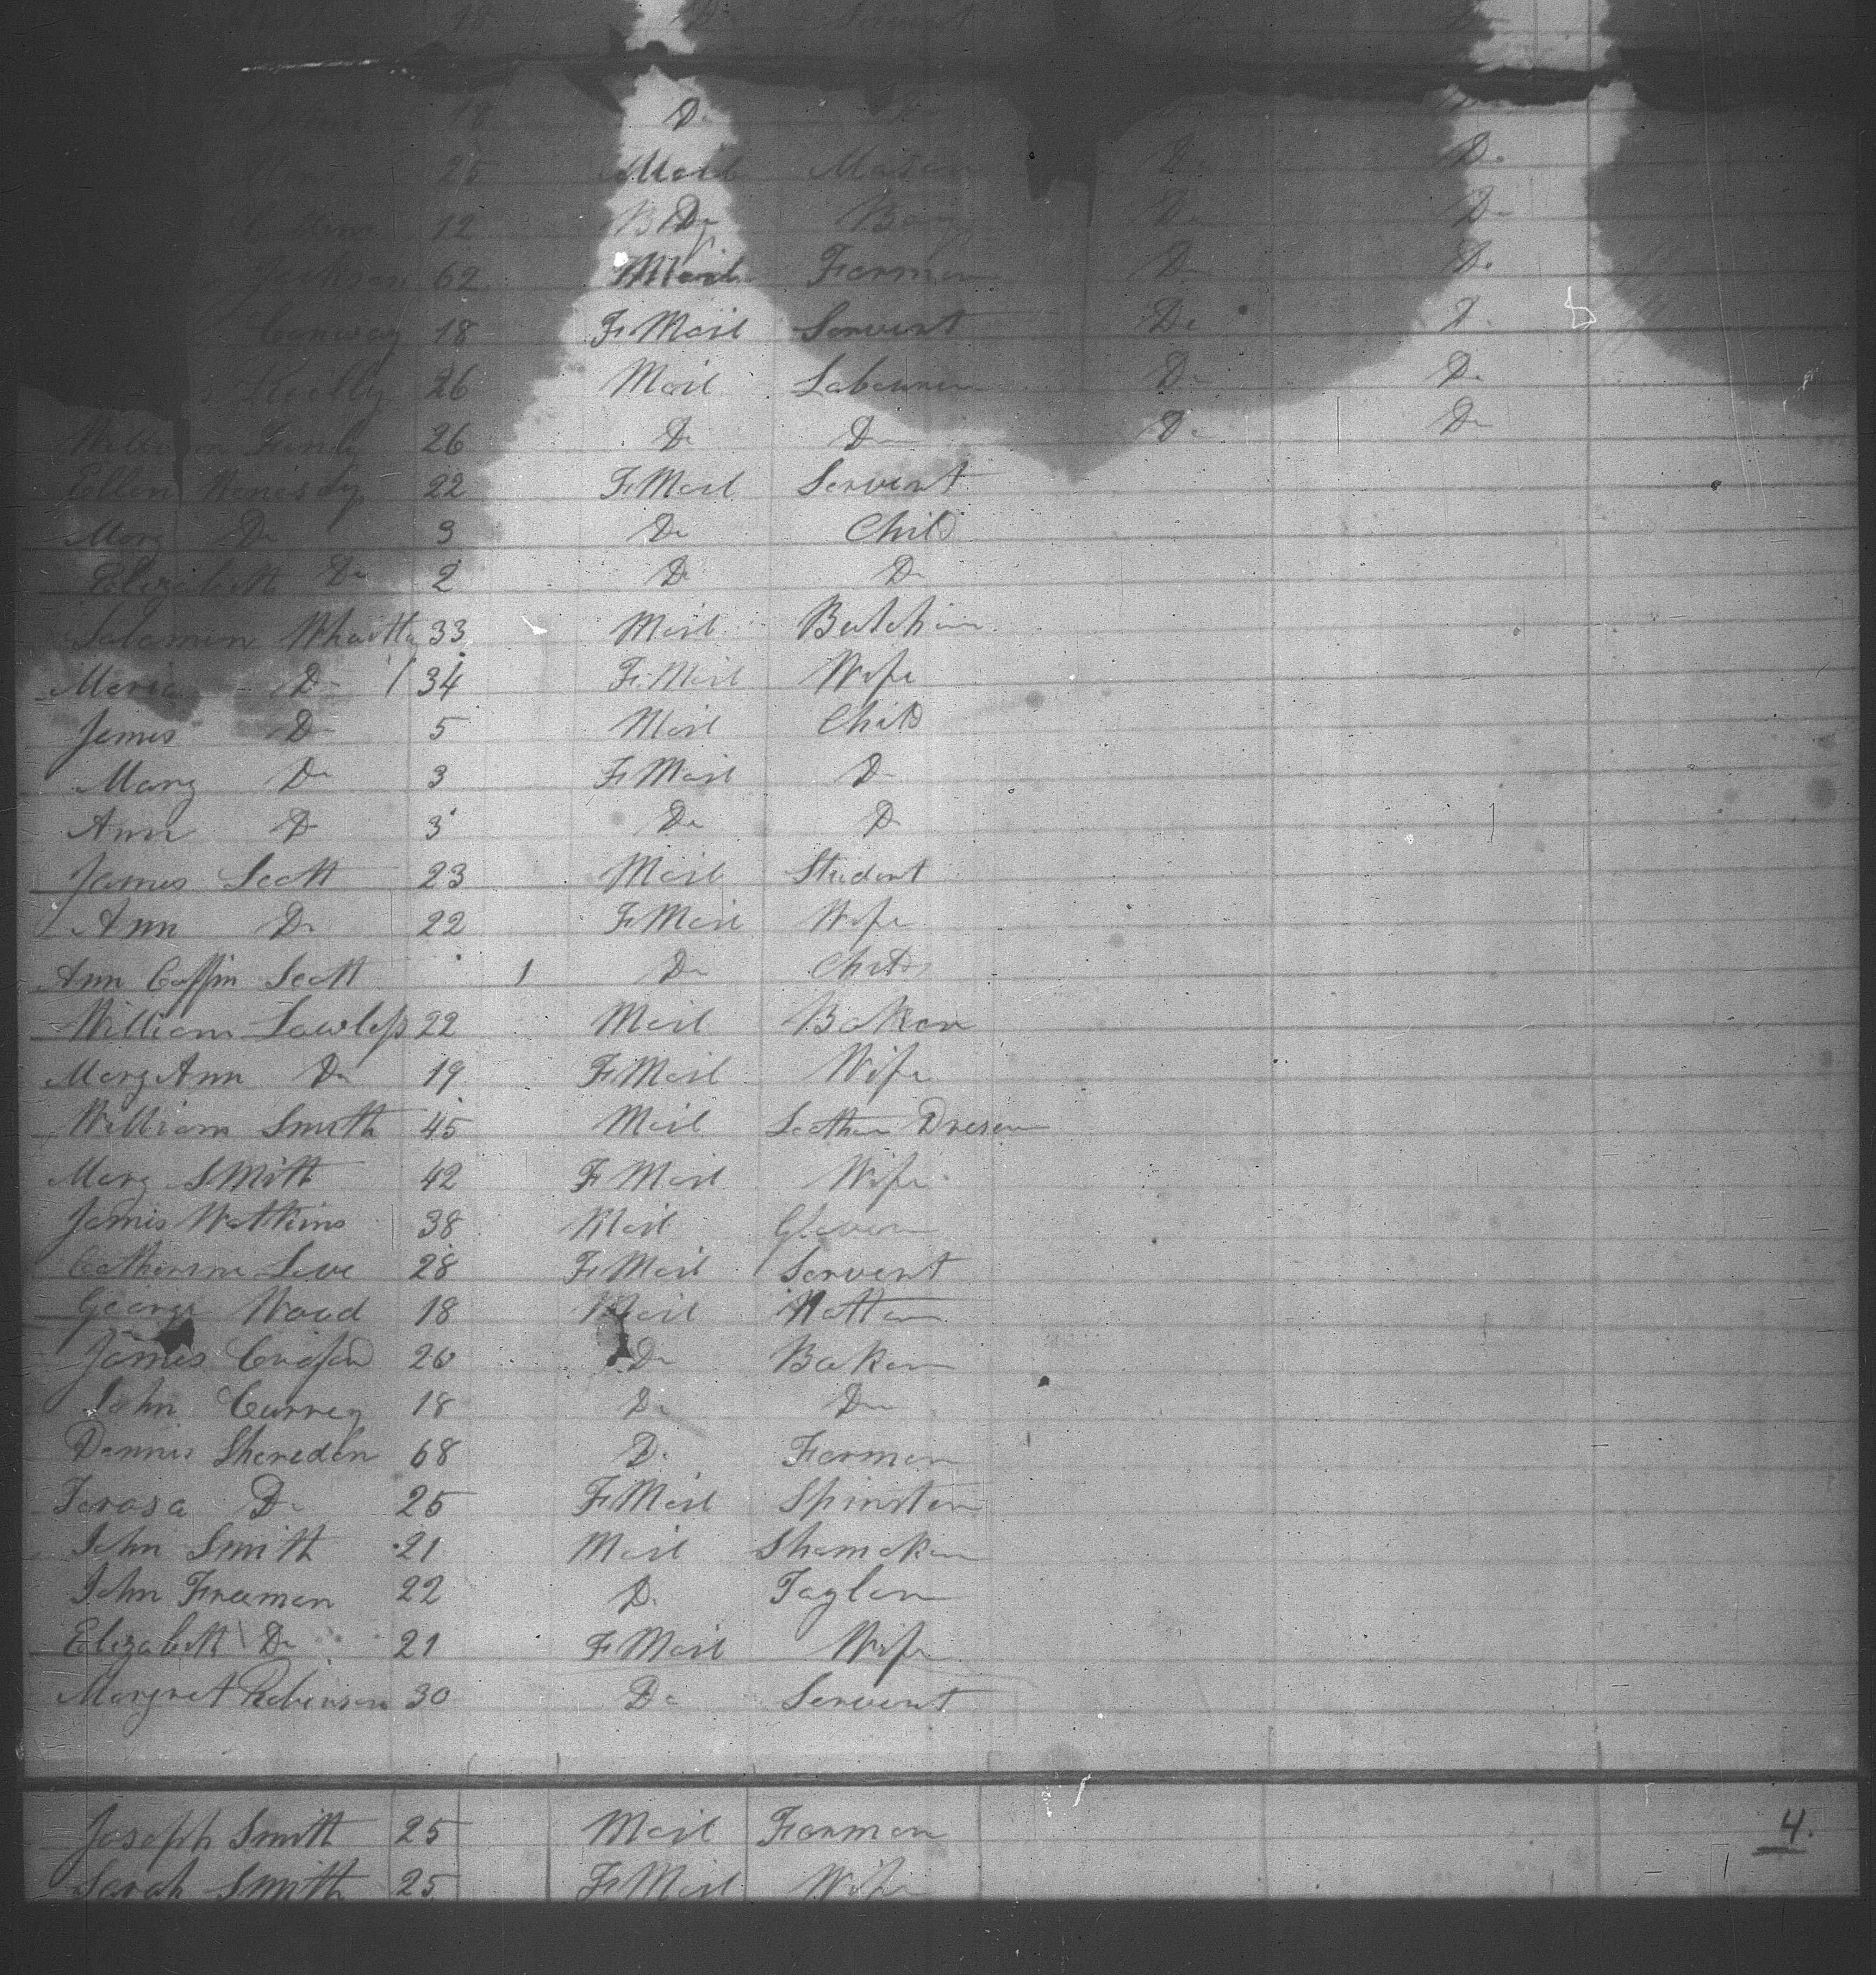 18 D. Servent
18 D.
25 Mail Mason D. D.
12 Do Boy Do Do
Jackson 62 Mail Farmer D. D.
Conway 18 F. Mail Servent Do D.
Keelly 26 Mail Labourer Do Do
William 26 Do Do Do Do
Ellen 22 F. Mail Servent
Mary Do 3 Do Child
Elizabeth Do 2 D D
Salamon 33 Mail Butcher
Maria D 34 F. Mail Wife
James D 5 Mail Child
Mary Do 3 F. Mail D
Ann D 3 Do D
James Scott 23 Mail Student
Ann D. 22 F. Mail Wife
Ann Coffin Scott 1 Do Child
William Lawless 22 Mail Baker
Mary Ann Do 19 F. Mail Wife
William Smith 45 Mail Leather Dreser
Mary Smith 42 F Mail Wife
James Watkins 38 Mail Glover
Catherine Love 28 F. Mail Servent
George Wood 18 Mail Hatter
James 20 Do Baker
John Currey 18 Do Do
Dennis Sheredan 68 D. Farmer
Terasa Do 25 F. Mail Spinster
John Smith 21 Mail Shomaker
John Freeman 22 D. Taylor
Elizabeth Do 21 F. Mail Wife
Margret Robinson 30 Do Servent
Joseph Smith 25 Mail Farmer 4.
Sarah Smith 25 F. Mail Wife